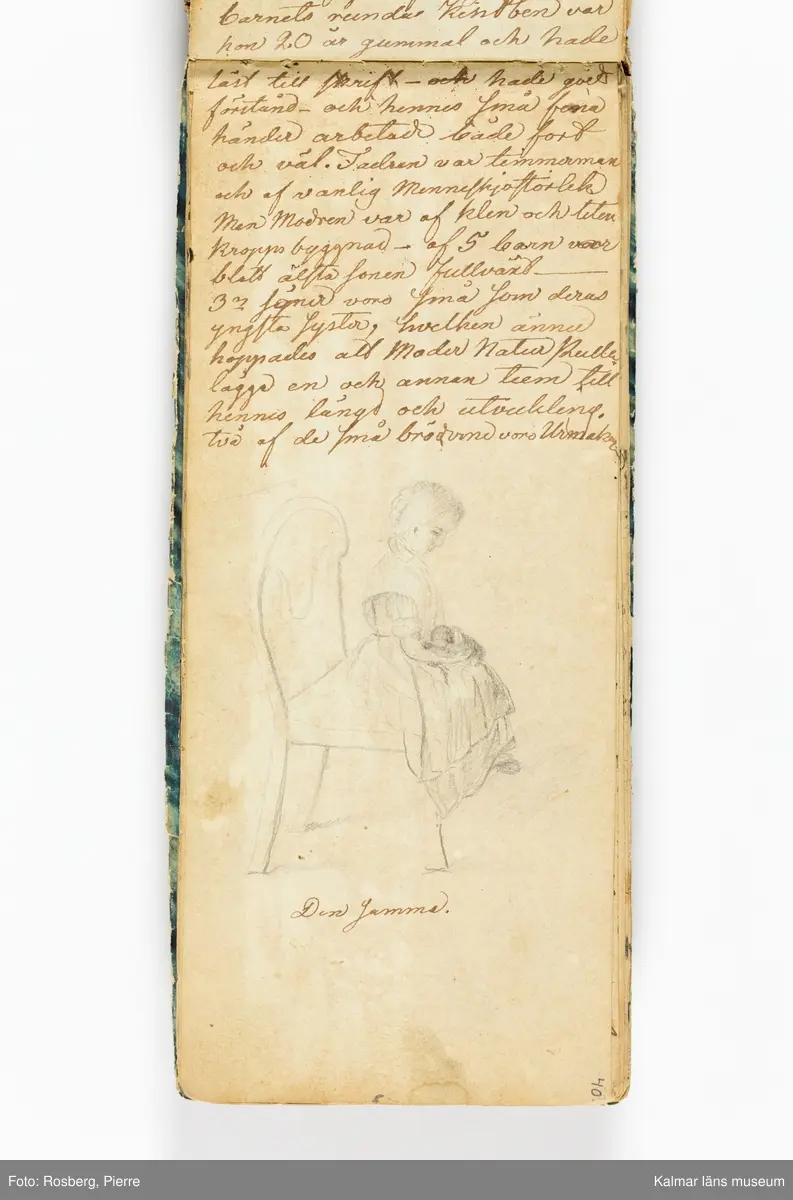 barnets runda kindben var
hon 20 år gammal och hade
läst till skrift – och hade god
förstånd – och hennes små fina
händer arbetade både fort
och väl. Fadren var timmerman
och af vanlig Menniskjostorlek
Men Modren var af klen och liten
kroppsbyggnad – af 5 barn var
blott älsta sonen fullväxt –
3ne söner voro små som deras
yngsta syster, hvilken ännu
hoppades att Moder Natur skulle
lägga en och annan tum till
hennis längd och utveckling.
två af de små bröderne voro Urmakare
Den samma.
40.
Foto: Rosberg, Pierre
Kalmar läns museum